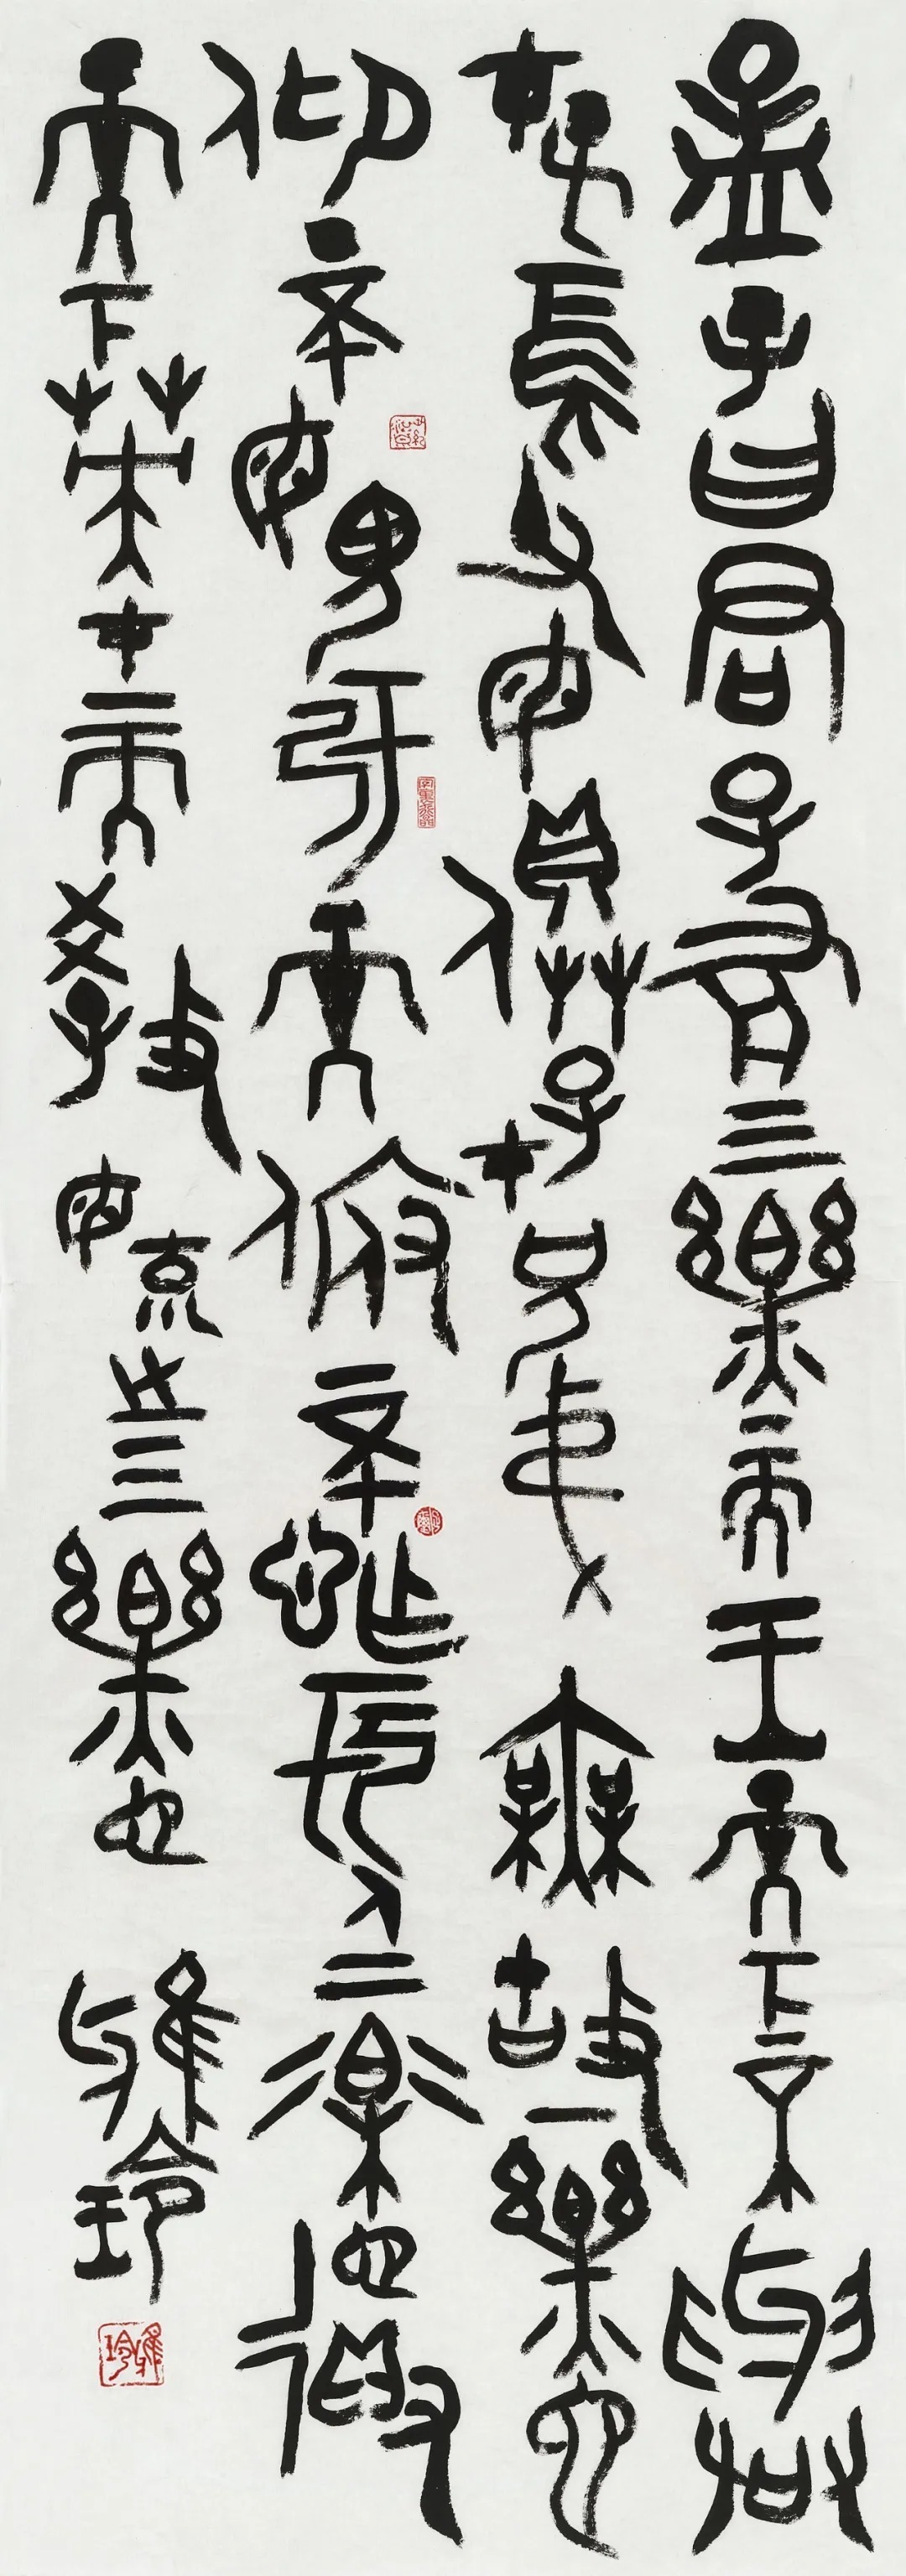 孟子曰君子有三樂而王天下不與
存焉父母俱存兄弟無故一樂也
仰不愧於天俯不怍於人二樂也得
天下英才而教育之三樂也 雅玲
雅玲